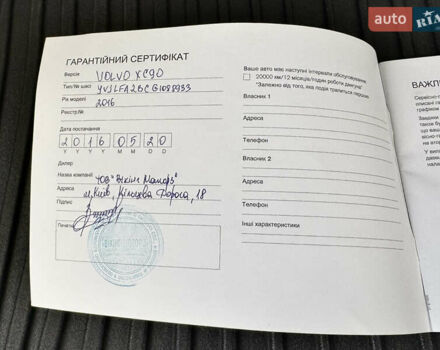 auto RIA
ГАРАНТІЙНИЙ СЕРТИФІКАТ
Версія VOLVO XC90
Тип/№ шасі
Рік моделі 2016
Реєстр.№
Дата постачання
2 0 1 6 0 5 2 0
Y Y Y Y M M D D
Дилер
Назва компанії ТОВ "Вікінг Моторз"
Адреса м.Київ, Кільцева Дорога, 18
Підпис
Печатка
Ваше авто має наступні інтервали обслуговування
20000 км/12 місяців/годин роботи двигуна*
*Залежно від того, яка подія трапиться першою
Власник 1
Адреса
Телефон
Власник 2
Адреса
Телефон
Інші характеристики
ВАЖЛ